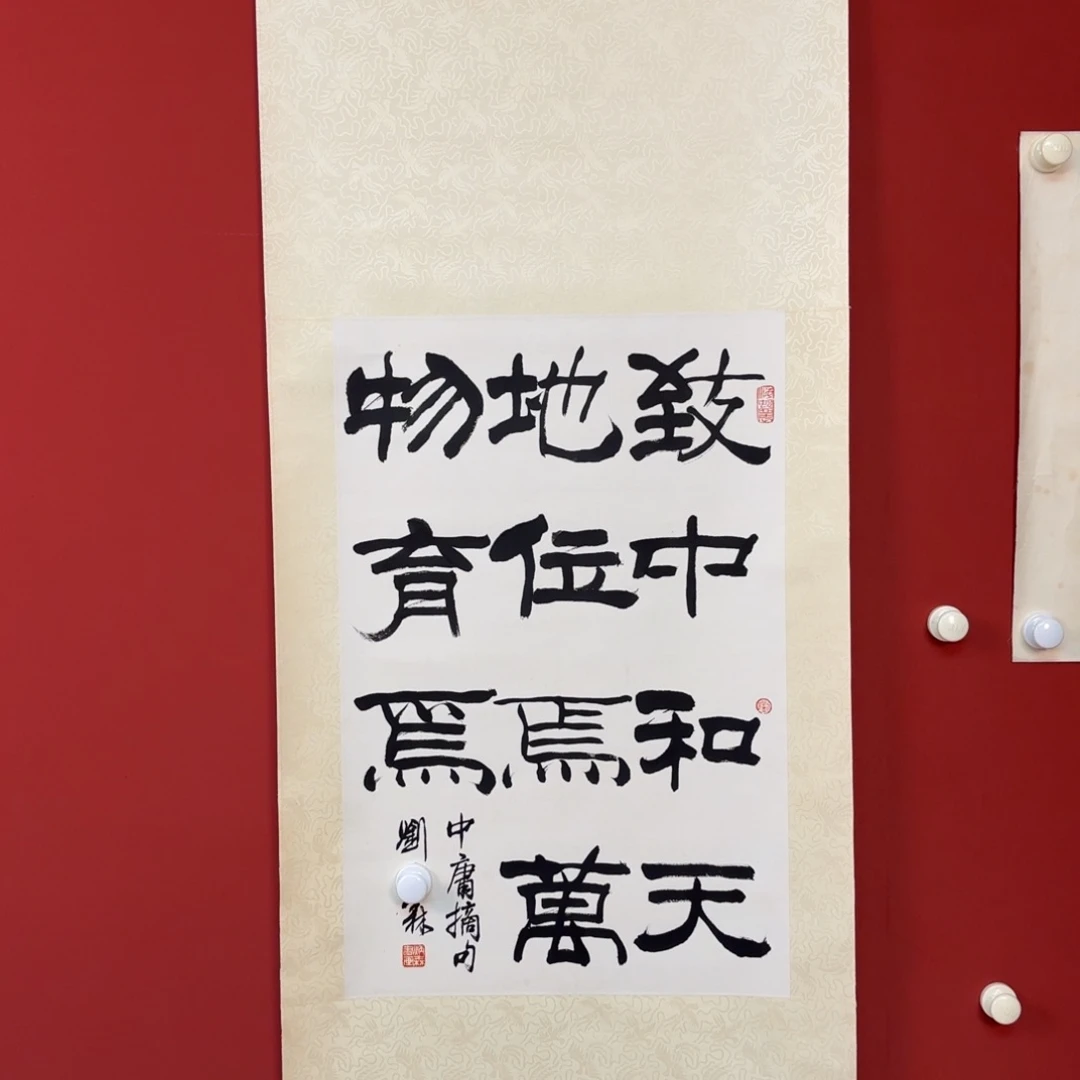 致中和天
地位焉萬
物育焉
中庸摘句
劉